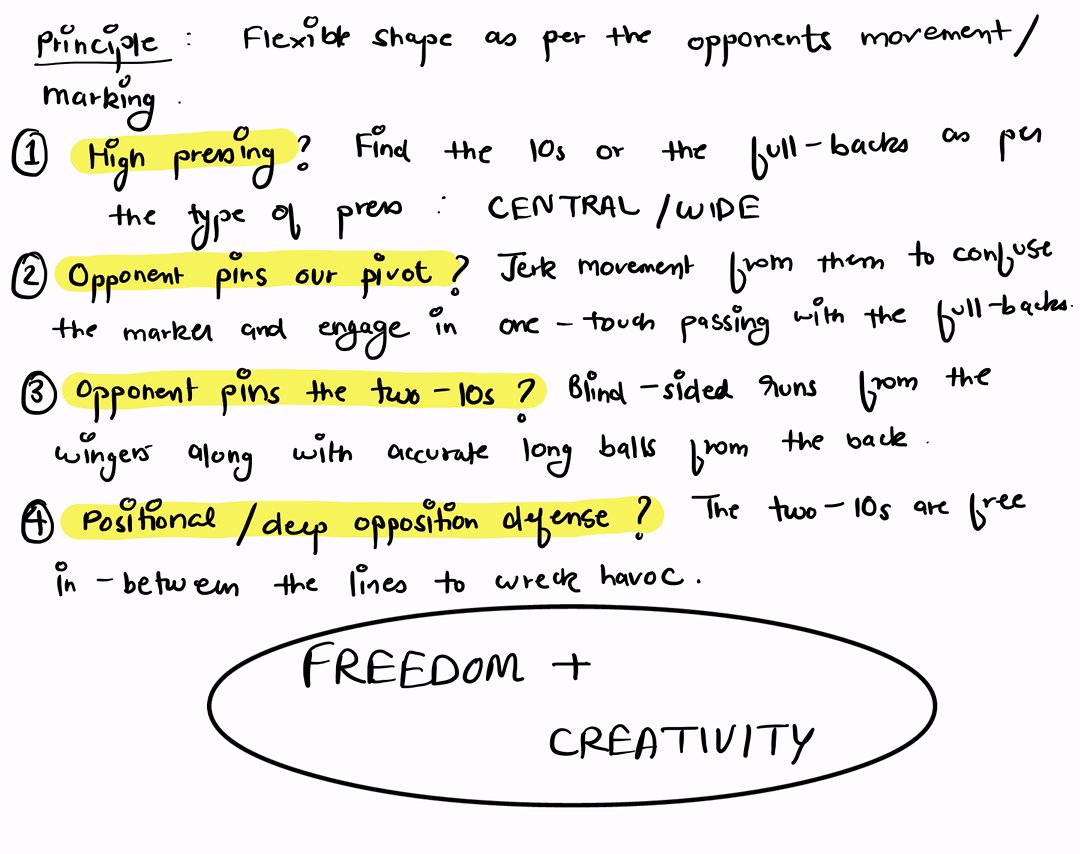 Principle : Flexible shape as per the opponents movement/
marking.
① High pressing? Find the 10s or the full-backs as per
the type of press : CENTRAL/WIDE
② Opponent pins our pivot? Jerk movement from them to confuse
the marker and engage in one-touch passing with the full-backs.
③ Opponent pins the two-10s? Blind-sided runs from the
wingers along with accurate long balls from the back.
④ Positional/deep opposition defense? The two-10s are free
in-between the lines to wreck havoc.
FREEDOM +
CREATIVITY